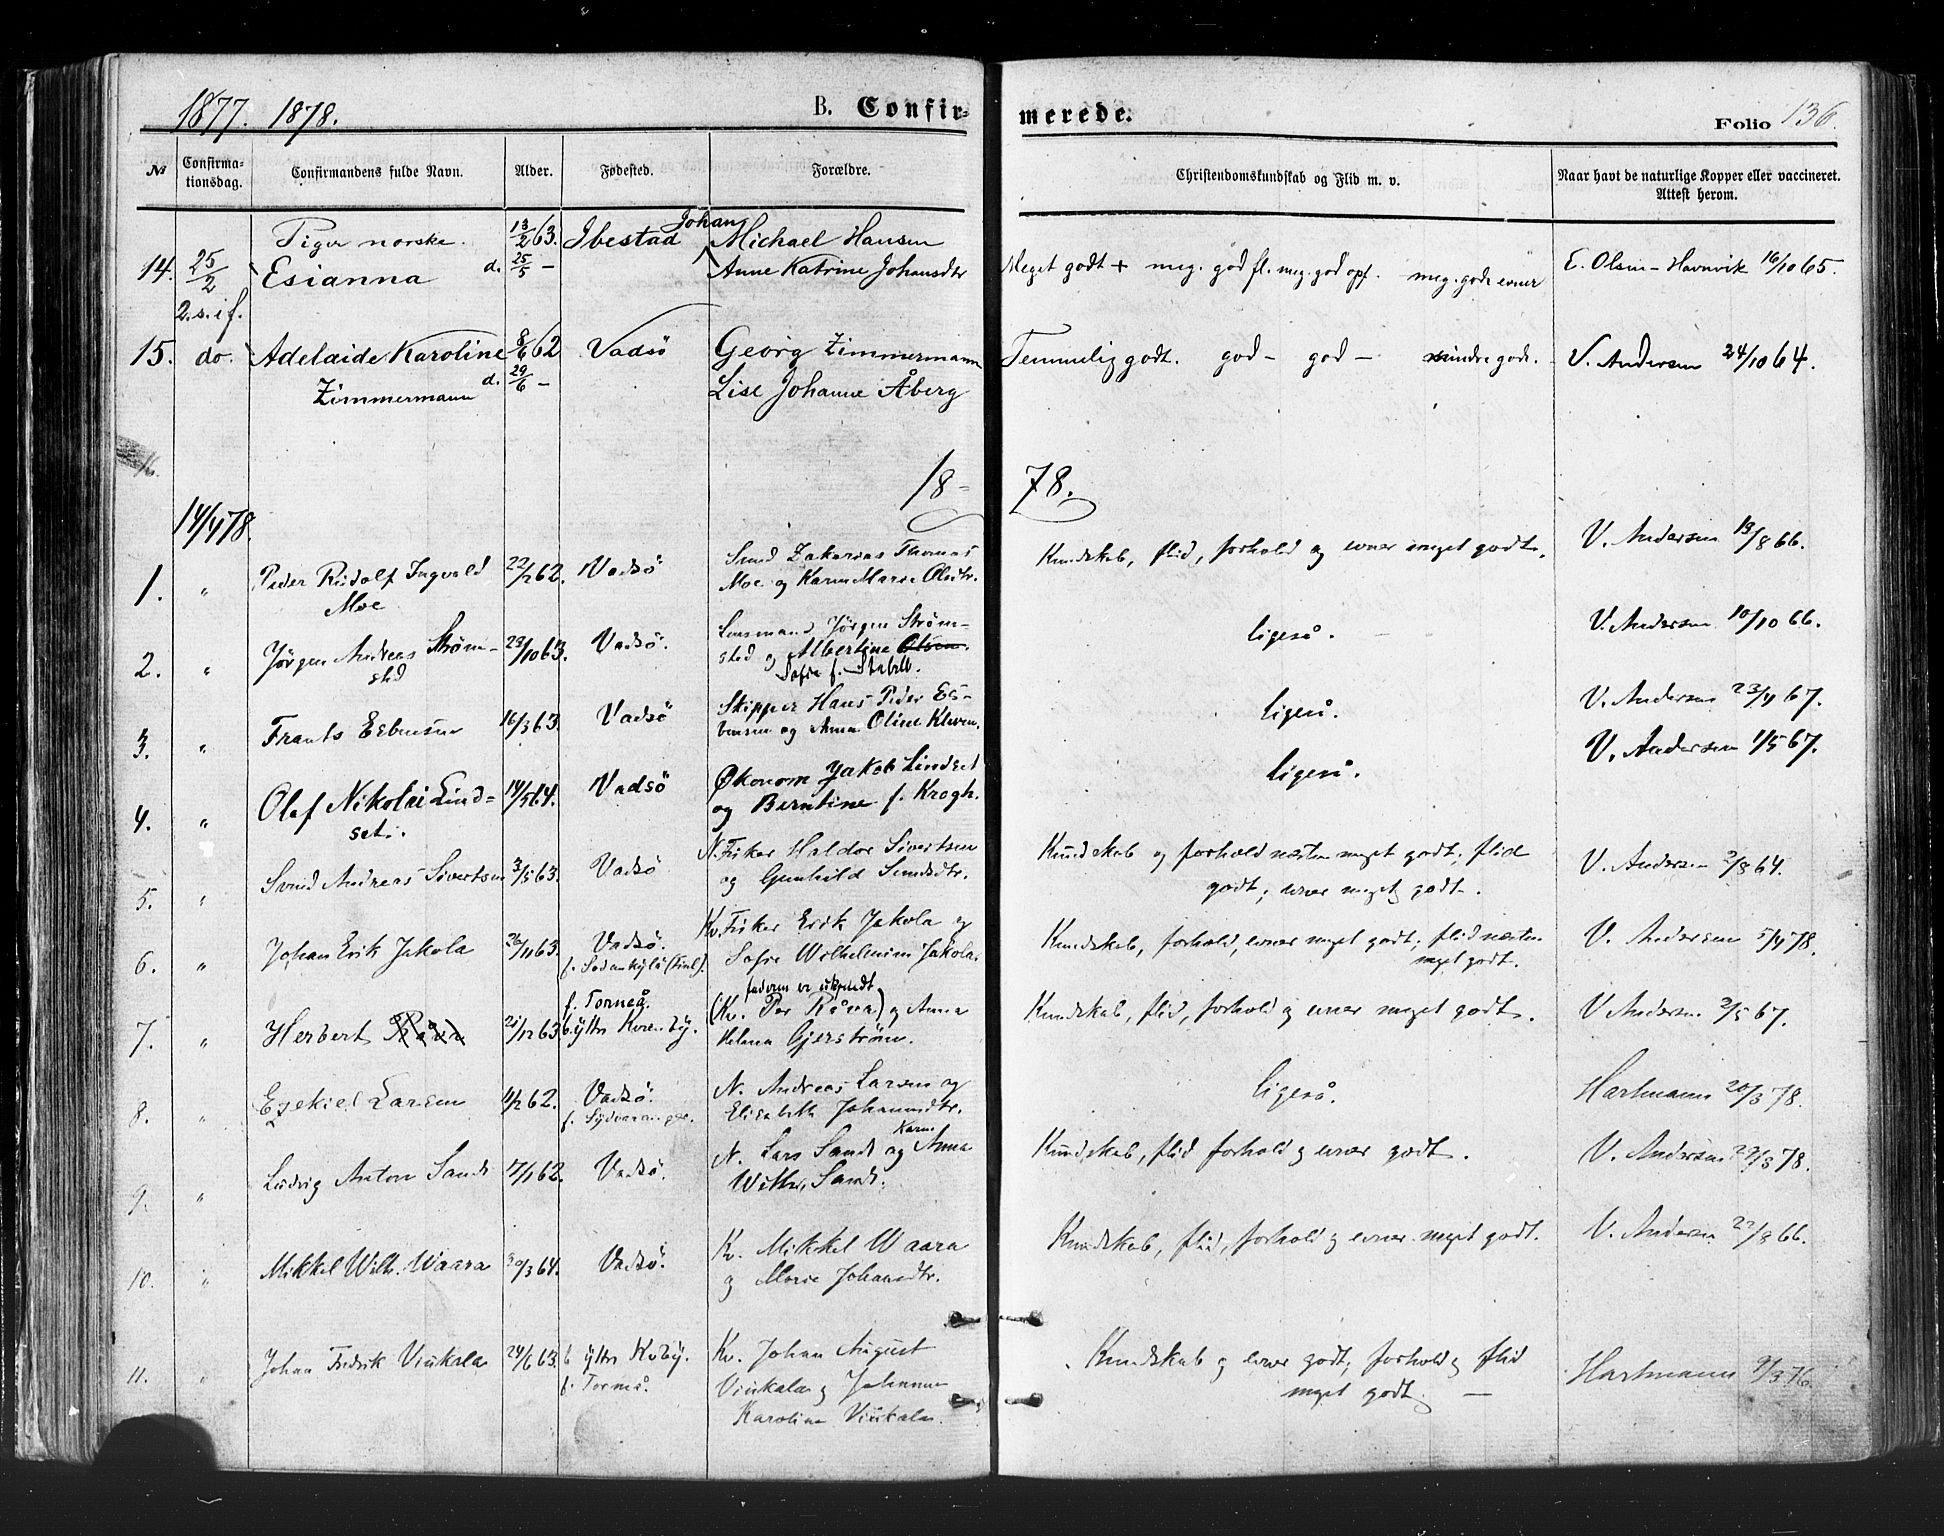 1877. 1878.
B. Confirmerede.
Folio 136.
№ Confirmationsdag. Confirmandens fulde Navn. Alder. Fødested. Forældre. Christendomskundskab og Flid m. v. Naar havt de naturlige Kopper eller vaccineret. Attest herom.
Piger norske. 13/2 63. Ibestad Johan Michael Hansen
14. 25/2 Esianna d. 25/5 — Anne Katrine Johansdtr Meget godt + meg. god fl. meg. god opf. meg. gode evner E. Olsen - Havnvik 16/10 65.
2. s. i f.
15. do. Adelaide Karoline 8/6 62 Vadsö Georg Zimmermann Temmelig godt. god — god — mindre gode. V. Andersen 24/10 64.
Zimmermann d. 29/6 — Lise Johanne Åberg
18-78.
14/4 78.
1. " Peder Rudolf Ingvald 22/12 62. Vadsö Zakarias Thomas Kundskab, flid, forhold og evner meget godt. V. Andersen 13/8 66.
Moe Moe og Karen Marie Olsdtr.
2. " Jörgen Andreas Strøm- 23/10 63. Vadsö. Lensmand Jörgen Strøm- ligeså. V. Andersen 10/10 66.
sted sted og Albertine Olsen.
Sofie f. Stabell.
3. " Frants Esbensen 16/3 63. Vadsö Skipper Hans Peder Es- ligeså. V. Andersen 23/4 67.
bensen og Anna Oline Kleven.
4. " Olaf Nikolai Lind- 14/5 64. Vadsö Økonom Jakob Lindset ligeså. V. Andersen 1/5 67.
set. og Berntine f. Krogh.
5. " Svend Andreas Sivertsen 3/5 63. Vadsö N. Fisker Haldor Sivertsen Kundskab og forhold næsten meget godt; flid V. Andersen 2/8 64.
og Gunhild godt; evner meget godt.
6. " Johan Erik Jakola 26/11 63. Vadsö. Kv. Fisker Erik Jakola og Kundskab, forhold, evner meget godt; flid næsten V. Andersen 5/4 78.
f. Sodankylä (Finl). Sofie Wilhelmine Jakola. meget godt.
faderen er ukjendt
f. Torneå.
7. " Herbert 21/12 63. (Kv. Per ) og Anna Kundskab, flid, forhold og evner meget godt. V Andersen 2/5 67.
Helena Gjerström.
8. " Ezekiel Larsen 4/2 62. Vadsö. N. Andreas Larsen og ligeså. Hartmann 20/3 78.
f. Sydvaranger. Elisabeth Johannsdtr.
9. " Ludvig Anton Sands 7/1 62. Vadsö. N. Lars Sands og Karen Anna Kundskab, flid forhold og evner godt. V. Andersen 27/3 78.
Wilh. Sands.
10. " Mikkel Wilh. Waara 30/3 64. Vadsö. Kv. Mikkel Waara Kundskab, flid, forhold og evner meget godt. V. Andersen 27/8 66.
og Marie Johansdtr.
11. " Johan Fredrik 24/6 63. Kv. Johan August Kundskab og evner godt; forhold og flid Hartmann 9/3 76.
f. Torneå. og Johanna meget godt. —
Karoline